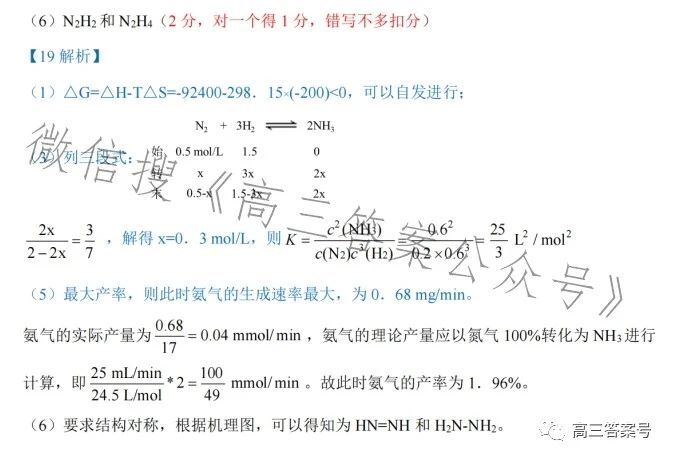 （6）N₂H₂ 和 N₂H₄（2 分，对一个得 1 分，错写不多扣分）
【19 解析】
（1）△G=△H-T△S=-92400-298．15×(-200)<0，可以自发进行；
N₂ + 3H₂ ⇌ 2NH₃
（3）列三段式：始 0.5 mol/L 1.5 0
转 x 3x 2x
末 0.5-x 1.5-3x 2x
2x/(2-2x) = 3/7，解得 x=0．3 mol/L，则 K = c²(NH₃)/(c(N₂)c³(H₂)) = 0.6²/(0.2×0.6³) = 25/3 L²/mol²
（5）最大产率，则此时氨气的生成速率最大，为 0．68 mg/min。
氨气的实际产量为 0.68/17 = 0.04 mmol/min，氨气的理论产量应以氮气 100%转化为 NH₃ 进行
计算，即 (25 mL/min)/(24.5 L/mol) *2 = 100/49 mmol/min。故此时氨气的产率为 1．96%。
（6）要求结构对称，根据机理图，可以得知为 HN=NH 和 H₂N-NH₂。
微信搜《高三答案公众号》
高三答案号